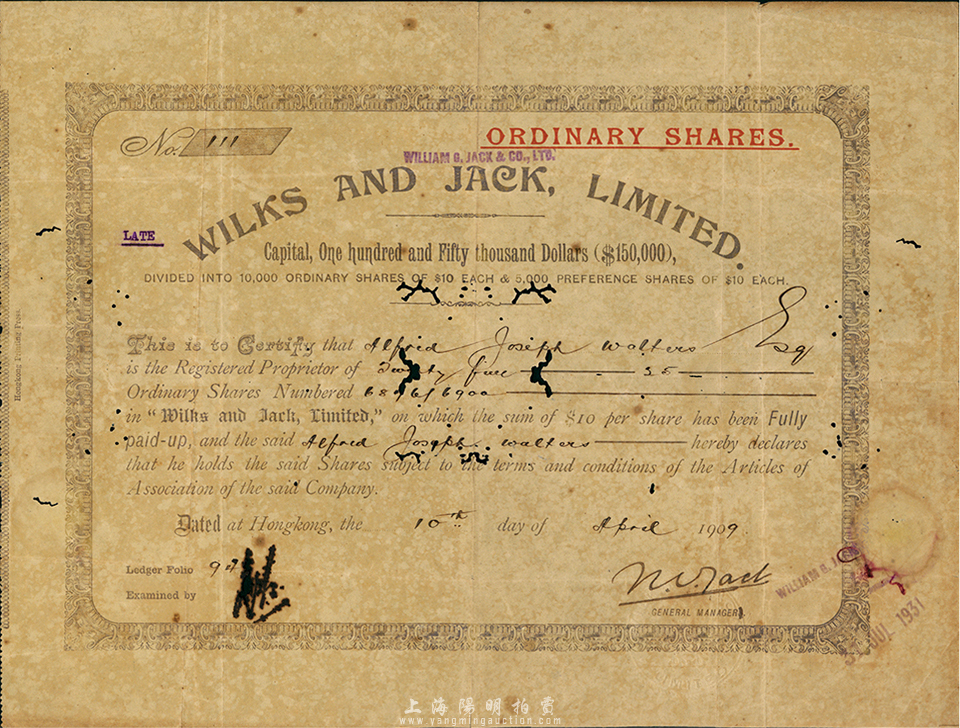 No. 111
ORDINARY SHARES.
WILLIAM G. JACK & CO., LTD.
WILKS AND JACK, LIMITED.
LATE
Capital, One hundred and Fifty thousand Dollars ($150,000),
DIVIDED INTO 10,000 ORDINARY SHARES OF $10 EACH & 5,000 PREFERENCE SHARES OF $10 EACH.
This is to Certify that Alfred Joseph Walters Esq
is the Registered Proprietor of Twenty five
Ordinary Shares Numbered 6900
in "Wilks and Jack, Limited," on which the sum of $10 per share has been Fully
paid-up, and the said Alfred Joseph Walters hereby declares
that he holds the said Shares subject to the terms and conditions of the Articles of
Association of the said Company.
Dated at Hongkong, the 10th day of April 1909
Ledger Folio
Examined by
GENERAL MANAGER
WILLIAM G.
JUL 1931
Hongkong Printing Press.
上海陽明拍賣
www.yangmingauction.com